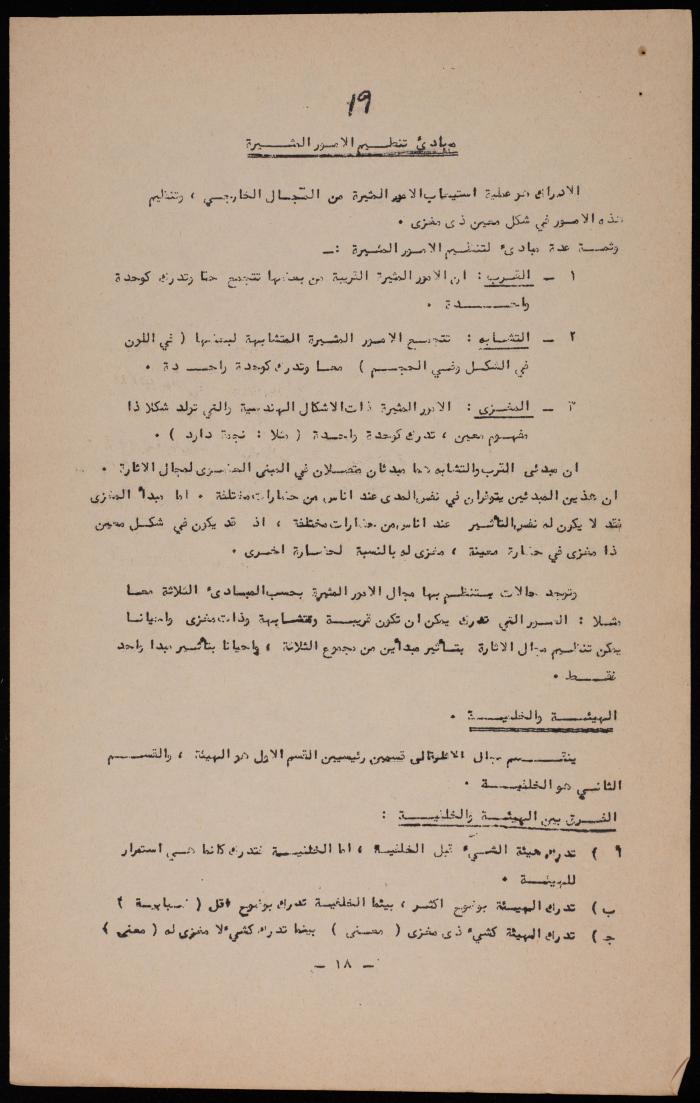 19
مبادئ تنظيم الامور المثيرة
الادراك هو عملية استيعاب الامور المثيرة من المجال الخارجي ، وتنظيم
هذه الامور في شكل معين ذى مغزى .
وثمة عدة مبادئ لتنظيم الامور المثيرة :ـ
١ ـ القرب : ان الامور المثيرة القريبة من بعضها تتجمع معا وتدرك كوحدة
واحدة .
٢ ـ التشابه : تتجمع الامور المثيرة المتشابهة لبعضها ( في اللون
في الشكل وفي الحجم ) معا وتدرك كوحدة واحدة .
٣ ـ المغزى : الامور المثيرة ذات الاشكال الهندسية والتي تولد شكلا ذا
مفهوم معين ، تدرك كوحدة واحدة ( مثلا : نجمة دارد ) .
ان مبدئى القرب والتشابه هما مبدئان متصلان في المبنى الحسى لمجال الاثارة .
ان هذين المبدئين يتوفران في نفس المدى عند اناس من حضارات مختلفة . اما مبدأ المغزى
فقد لا يكون له نفس التأثير عند اناس من حضارات مختلفة ، اذ قد يكون في شكل معين
ذا مغزى في حضارة معينة ، مغزى له بالنسبة لحضارة اخرى .
وتوجد حالات ينتظم بها مجال الامور المثيرة بحسب المبادئ الثلاثة معا
مثلا : الصور التي تدرك يمكن ان تكون قريبة ومتشابهة وذات مغزى واحيانا
يمكن تنظيم مجال الاثارة بتأثير مبدأين من مجموع الثلاثة ، واحيانا بتأثير مبدا واحد
فقط .
الهيئة والخلفية .
ينقسم مجال الادراك الى قسمين رئيسيين القسم الاول هو الهيئة ، والقسم
الثاني هو الخلفية .
الفرق بين الهيئة والخلفية :
أ ) تدرك هيئة الشيء قبل الخلفية ، اما الخلفية فتدرك كانها هي استمرار
للهيئة .
ب ) تدرك الهيئة بوضوح اكثر ، بينما الخلفية تدرك بوضوح اقل ( ضبابية )
ج ) تدرك الهيئة كشيء ذى مغزى ( معنى ) بينما تدرك كشيء لا مغزى له ( معنى )
ـ ١٨ ـ